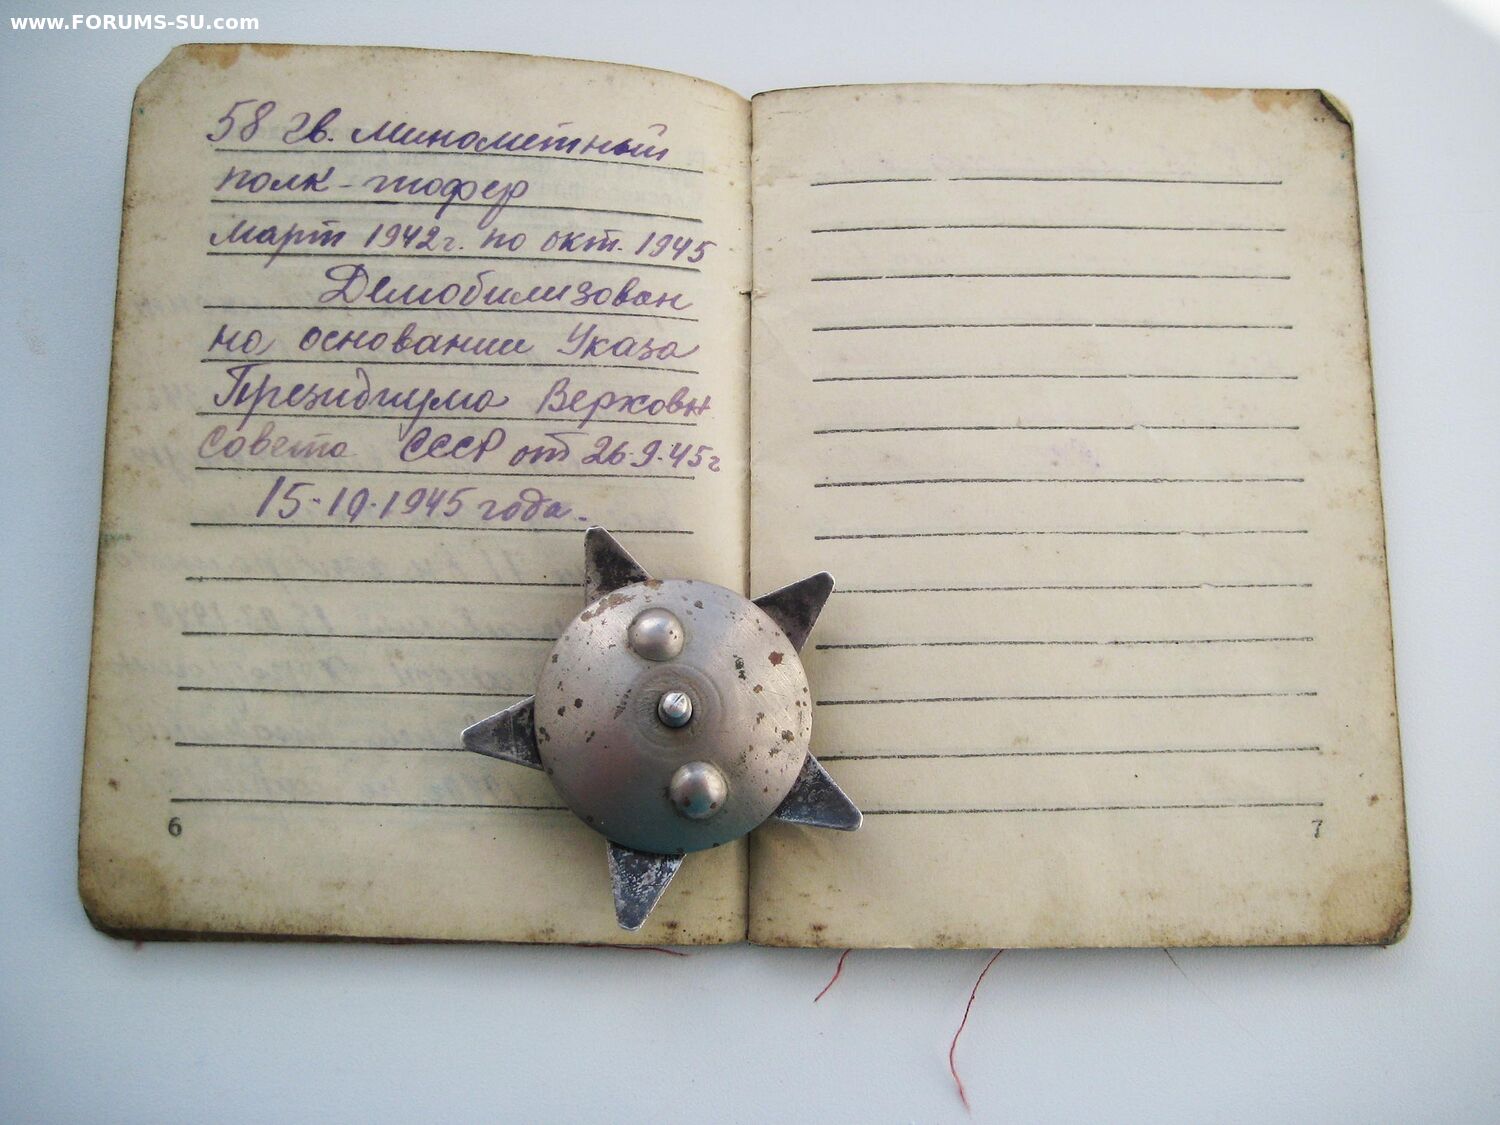 www.FORUMS-SU.com
58 гв. минометный
полк - шофер
март 1942 г. по окт. 1945
Демобилизован
на основании Указа
Президиума Верховн.
Совета СССР от 26.9.45 г
15.10.1945 года.
6
7